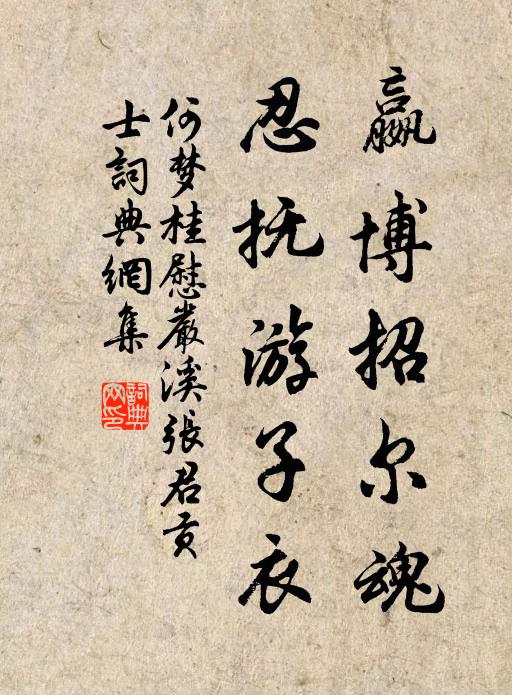 嬴博招尔魂
忍抚游子衣
何梦桂慰嚴溪張君贡
士詞典網集
詞典网印